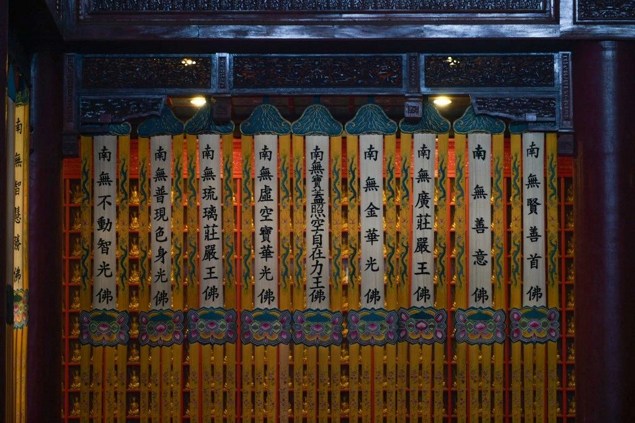 南無賢善首佛
南無善意佛
南無廣莊嚴王佛
南無金華光佛
南無寶蓋照空自在力王佛
南無虛空寶華光佛
南無琉璃莊嚴王佛
南無普現色身光佛
南無不動智光佛
南無智慧勝佛